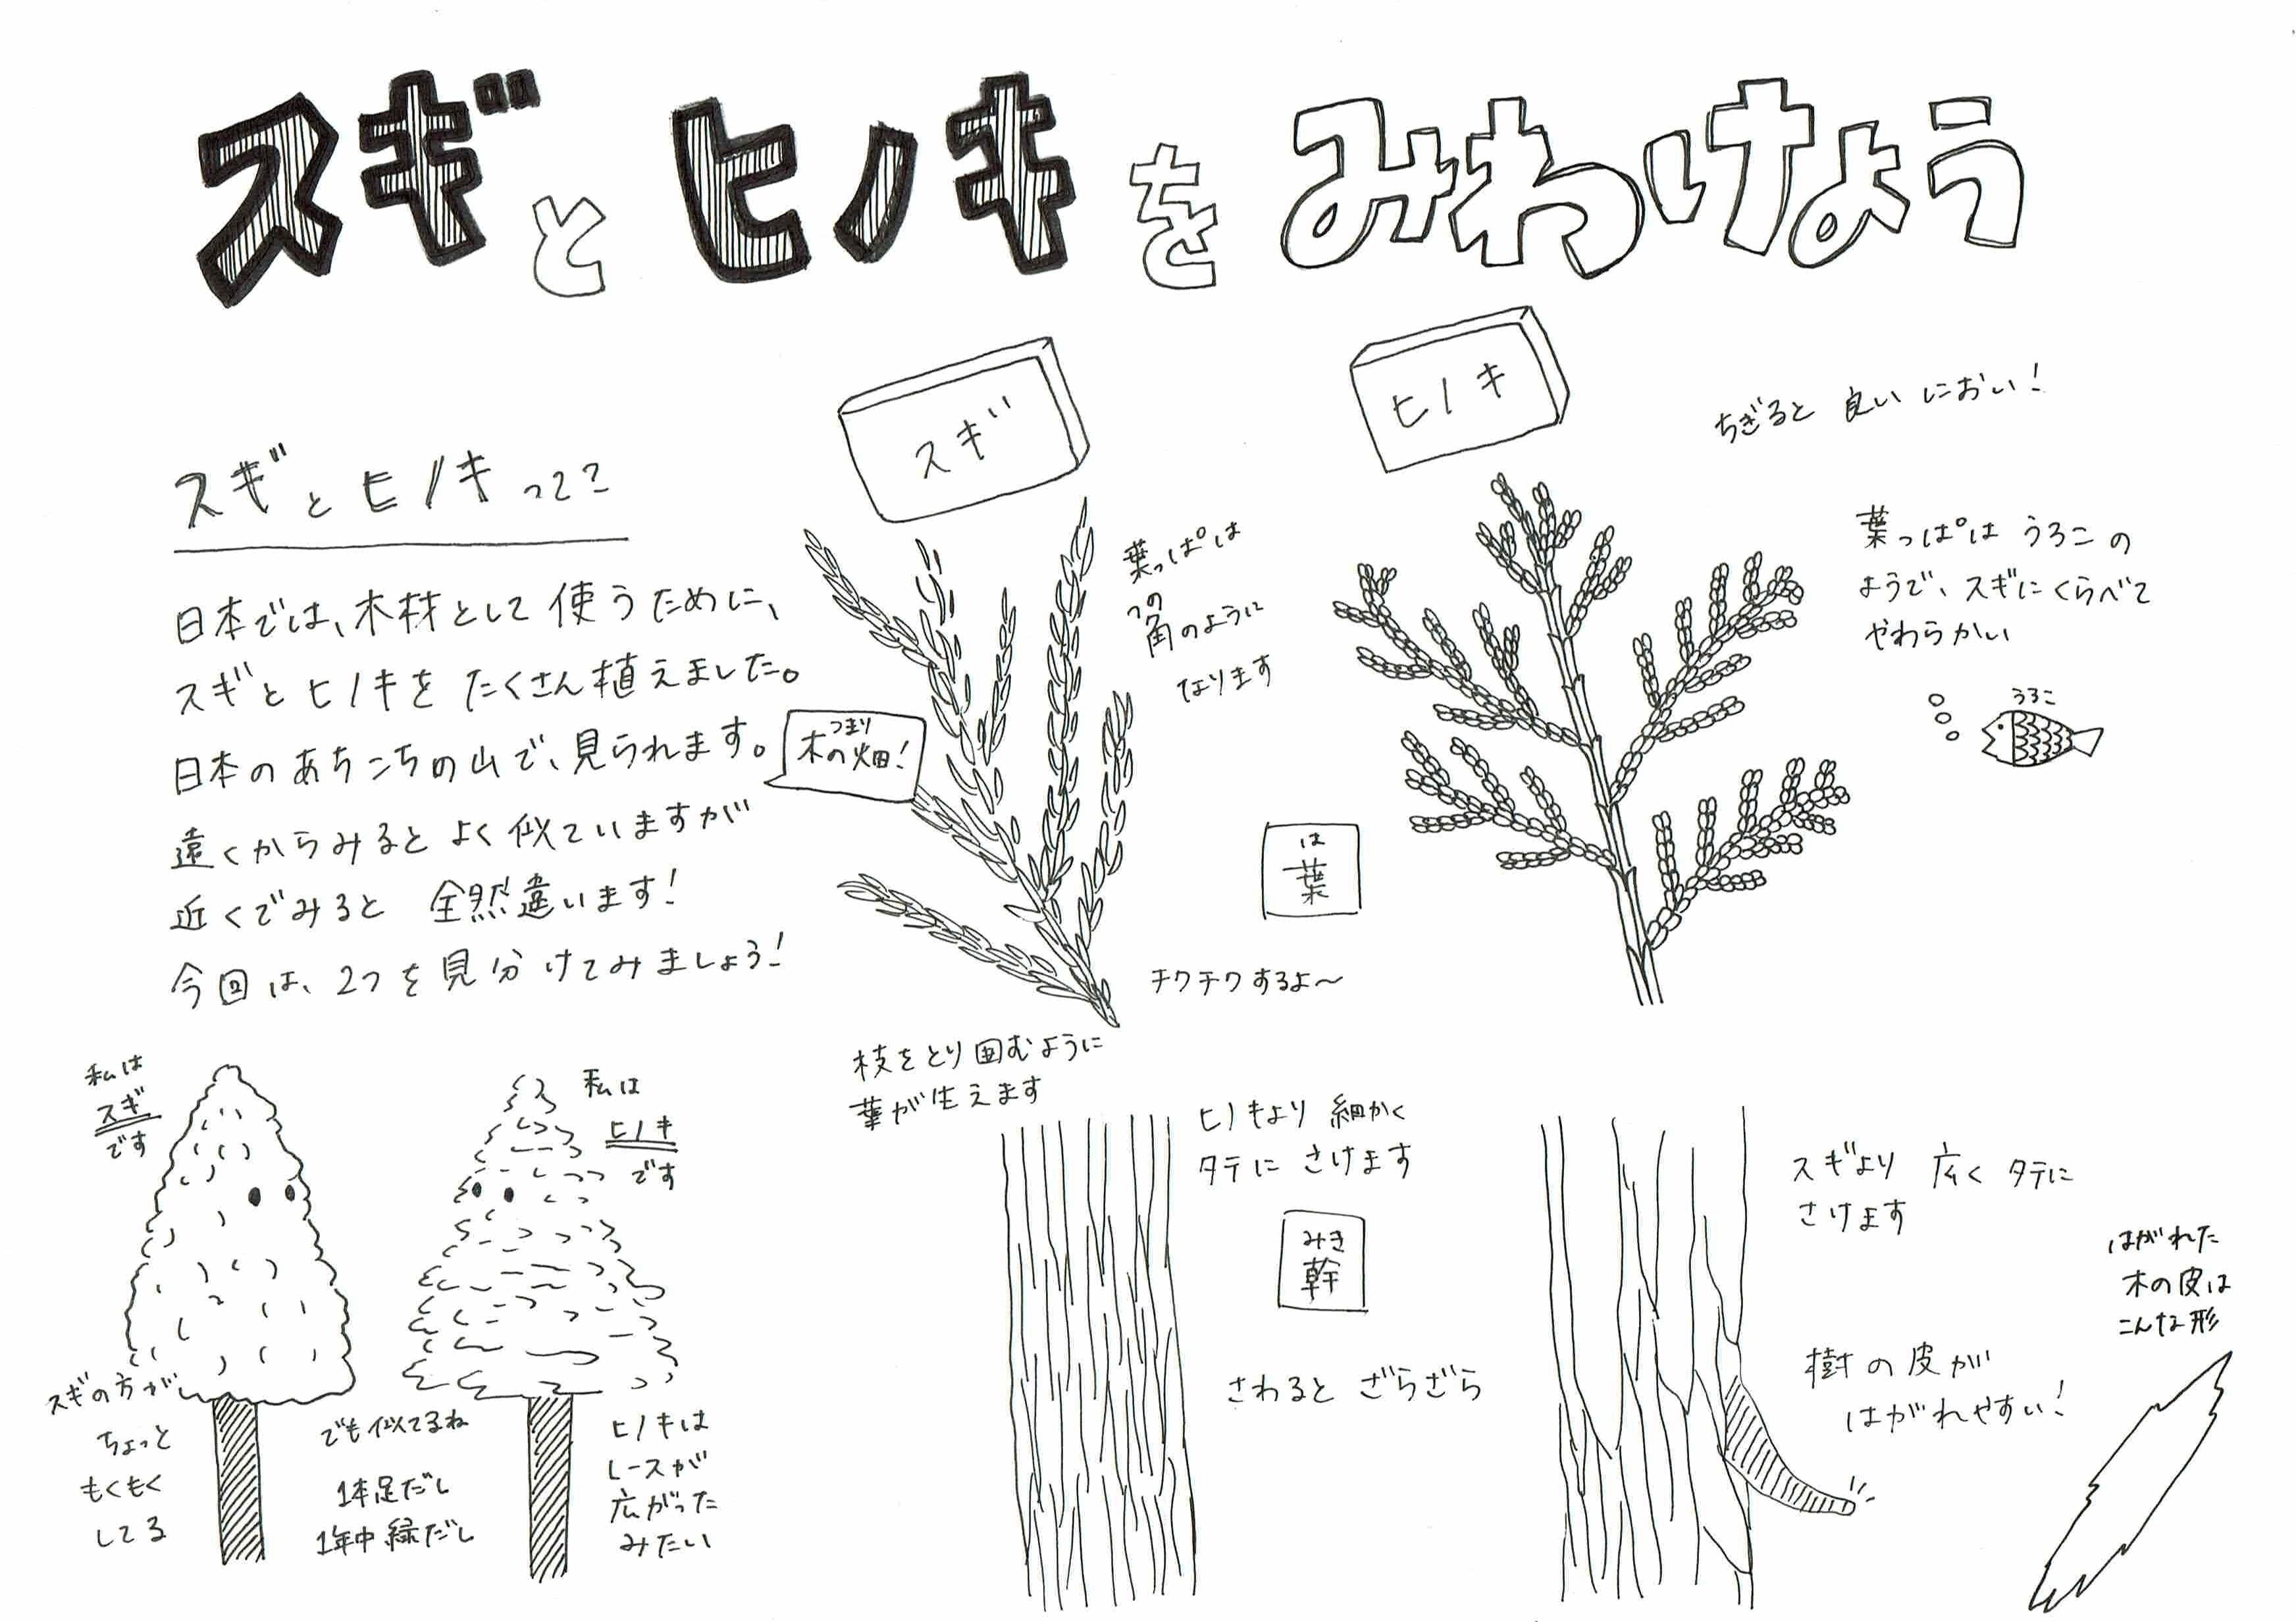 スギとヒノキをみわけよう
スギとヒノキって？
日本では、木材として使うために、
スギとヒノキをたくさん植えました。
日本のあちこちの山で、見られます。
つまり
木の畑！
遠くからみるとよく似ていますが
近くでみると 全然違います！
今回は、2つを見分けてみましょう！
私は
スギ
です
私は
ヒノキ
です
スギの方が
ちょっと
もくもく
してる
でも似てるね
1本足だし
1年中緑だし
ヒノキは
レースが
広がった
みたい
スギ
葉っぱは
つの
角のように
なります
チクチクするよ〜
枝をとり囲むように
葉が生えます
は
葉
ヒノキ
ちぎると 良い におい！
葉っぱは うろこの
ようで、スギにくらべて
やわらかい
うろこ
ヒノキより 細かく
タテに さけます
みき
幹
さわると ざらざら
スギより 広く タテに
さけます
樹の皮が
はがれやすい！
はがれた
木の皮は
こんな形